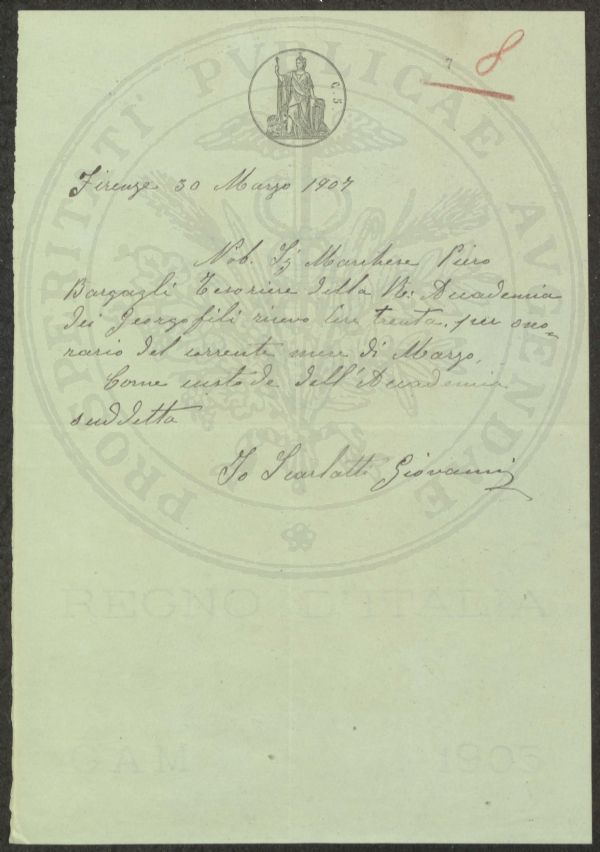 8
C. 5.
PROSPERITATI PUBLICAE AVGENDAE
Firenze 30 Marzo 1907
Nob. Sig Marchese Piero
Bargagli Tesoriere della R: Accademia
dei Georgofili ricevo lire trenta, per ono=
rario del corrente mese di Marzo,
Come custode dell'Accademia
suddetta
Io Scarlatti Giovanni
REGNO D'ITALIA
GAM 1905